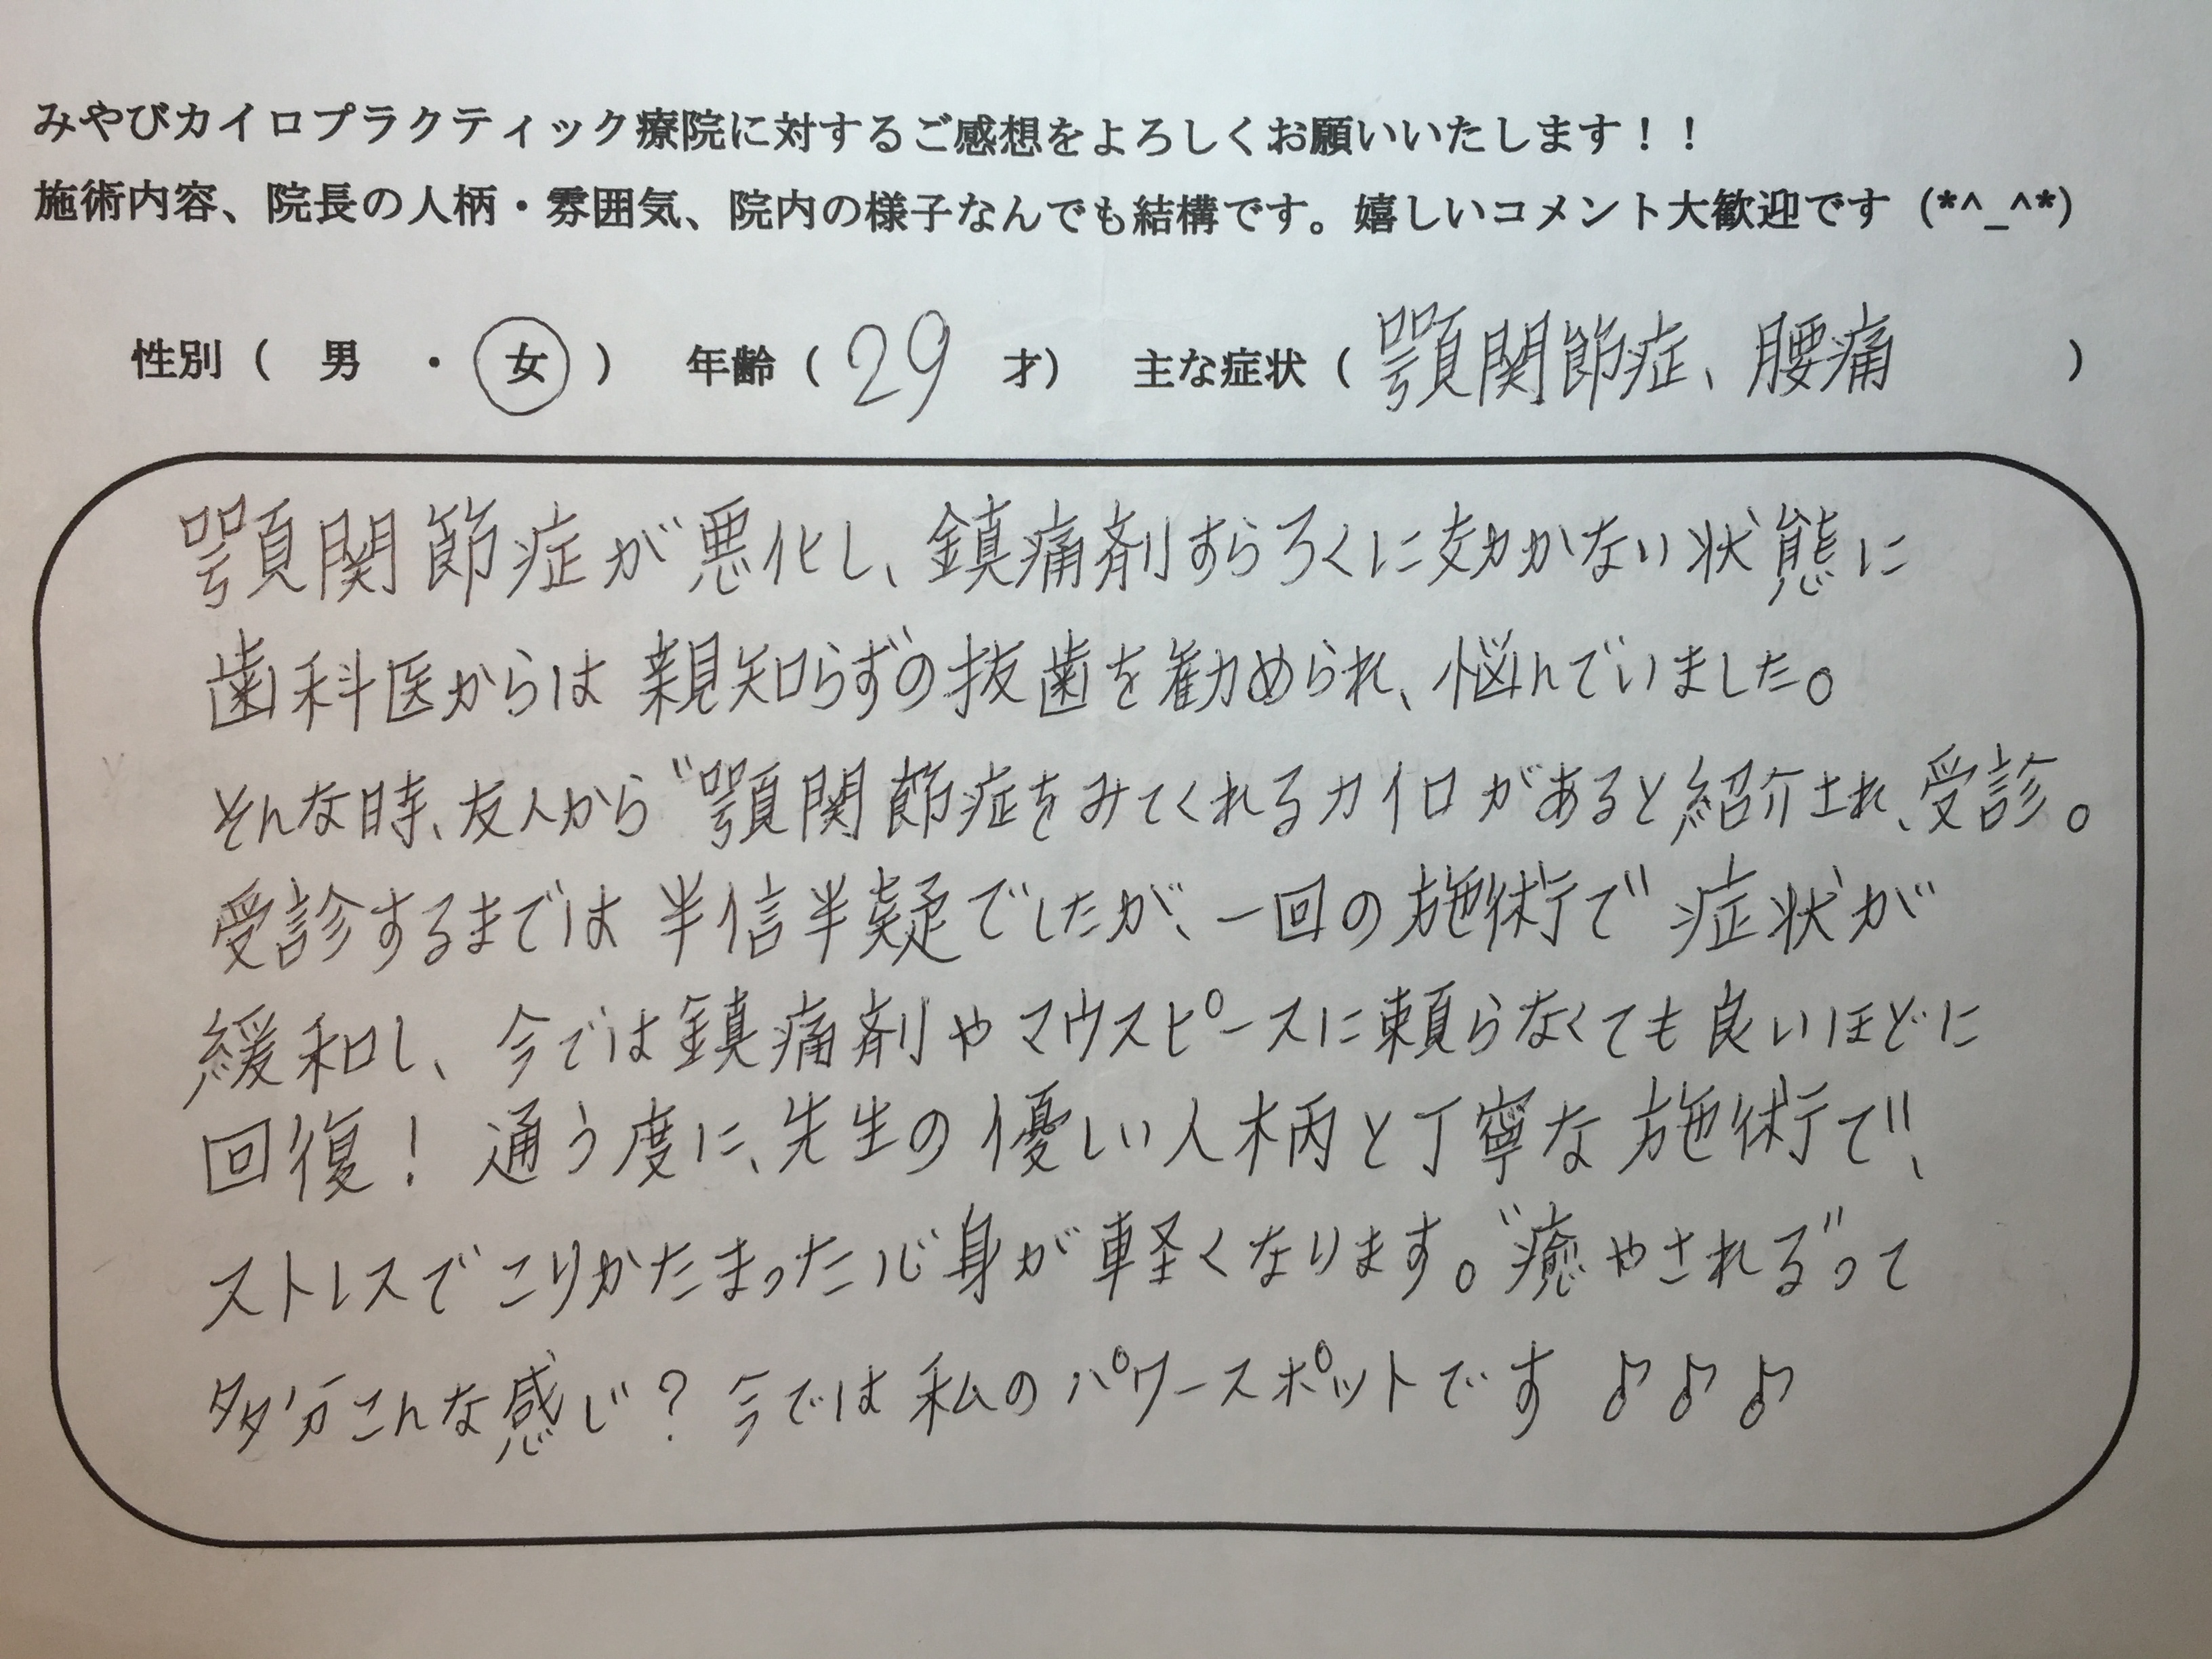 みやびカイロプラクティック療院に対するご感想をよろしくお願いいたします！！
施術内容、院長の人柄・雰囲気、院内の様子なんでも結構です。嬉しいコメント大歓迎です（*^_^*）
性別（ 男 ・ 女 ） 年齢（ 29 才） 主な症状（ 顎関節症、腰痛 ）
顎関節症が悪化し、鎮痛剤すらろくに効かない状態に
歯科医からは親知らずの抜歯を勧められ、悩んでいました。
そんな時、友人から“顎関節症をみてくれるカイロがあると紹介され、受診。
受診するまでは半信半疑でしたが、一回の施術で症状が
緩和し、今では鎮痛剤やマウスピースに頼らなくても良いほどに
回復！ 通う度に、先生の優しい人柄と丁寧な施術で、
ストレスでこりかたまった心身が軽くなります。“癒やされる”って
多分こんな感じ？ 今では私のパワースポットです♪♪♪